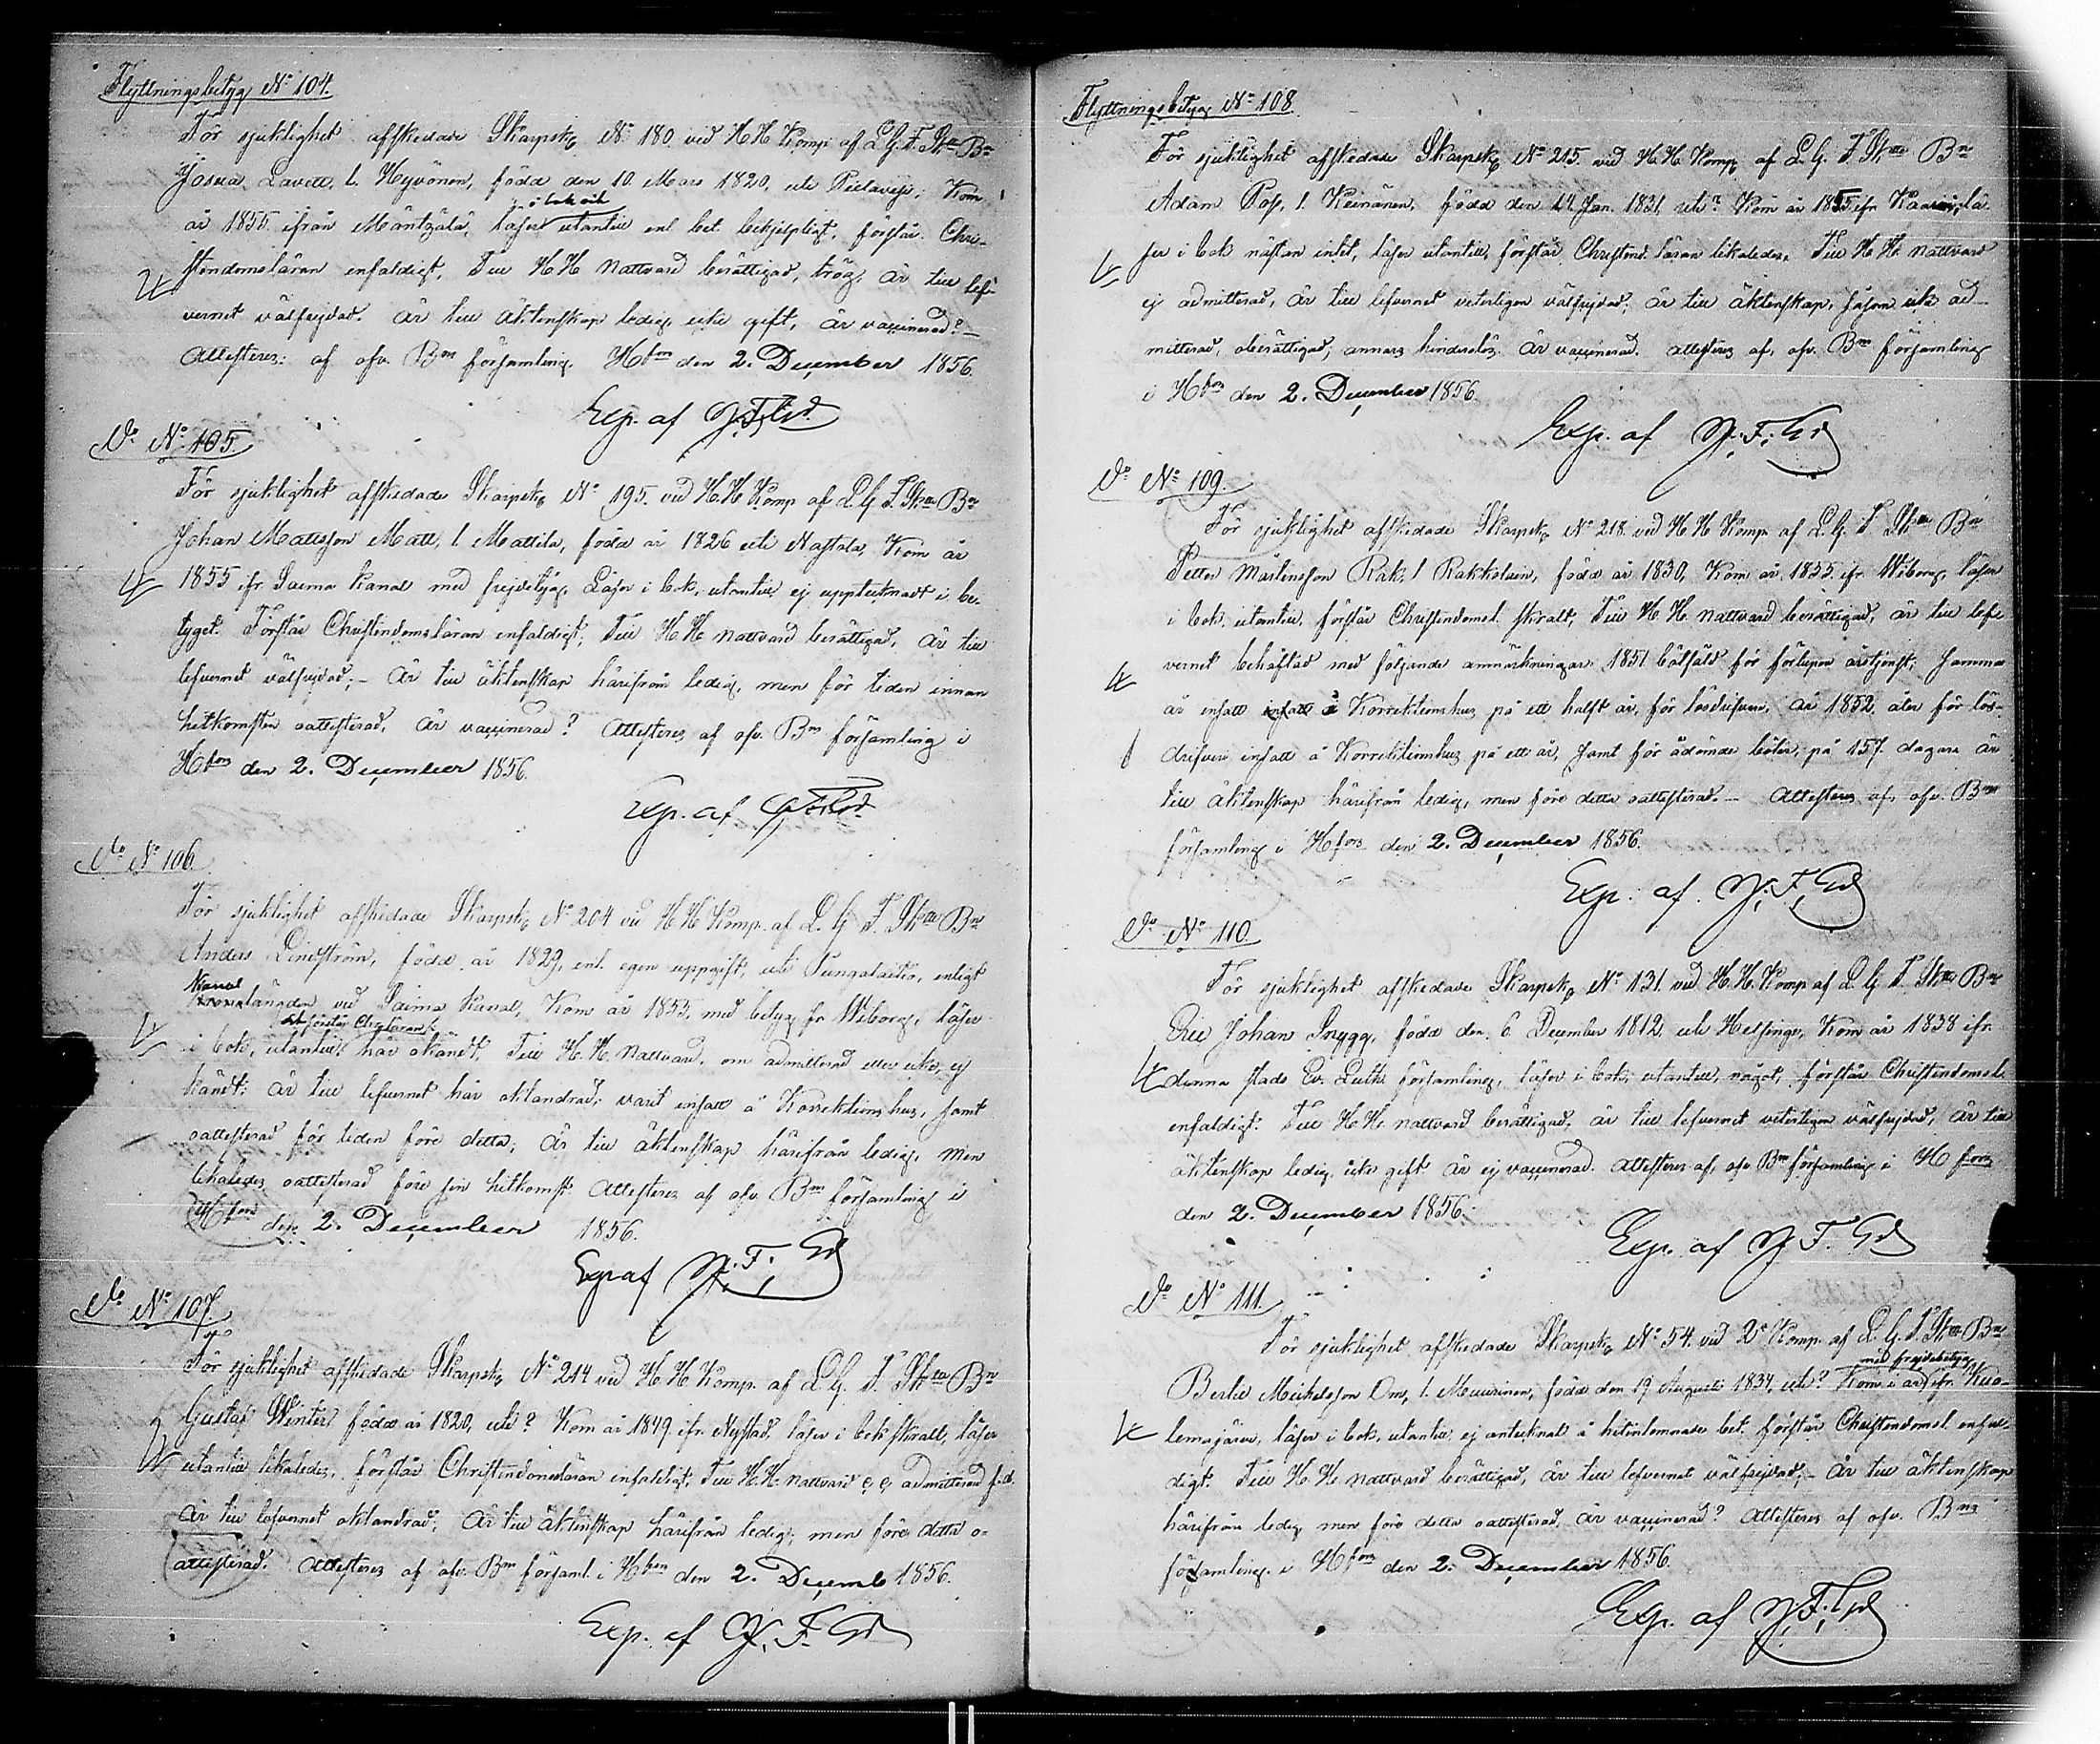 Flyttningsbetyg N:o 104.
För sjuklighet afskedade Skarpsk. N:o 180 vid H H Komp af L.G.F. Sk:tte B:n
Josua Lavett, l. Hyvönen, född den 10. Mars 1820, uti Pielavesi; Kom
i bok och
år 1855 ifrån Mäntzälä, läser utantill enl. bet. behjelpligt, förstår Chri-
stendomsläran enfaldigt, Till H H Nattvard berättigad, trög, är till lef-
vernet välfrejdad. är till äktenskap ledig icke gift, är vaccinerad? –
Attesteras: af ofv. B:ns församling. H:fors den 2. December 1856.
Exp. af
D:o N:o 105
För sjuklighet afskedade Skarpsk. N:o 195. vid H.H Komp af L.G F. Sk:tte B:n
Johan Mattsson Matt, l. Mattila, född år 1826 uti Nastola, Kom år
1855 ifr Saima kanal med frejdebetyg. Läser i bok, utantill ej upptecknadt i be-
tyget. Förstår Christendomsläran enfaldigt, Till H.H. nattvard berättigad, är till
lefvernet välfrejdad; – är till äktenskap härifrån ledig, men för tiden innan
hitkomsten oattesterad, är vaccinerad? Attesteras af ofv. B:ns församling i
H:fors den 2. December 1856.
Exp. af
D:o N:o 106.
För sjuklighet afskedade Skarpsk. N:o 204 vid H H Komp. af L. G F. Sk:tte B:n
Anders Lindström, född år 1829, enl. egen uppgift, uti Tungalaitio, enligt
Kanal
längden vid Saima Kanal, Kom år 1855, med betyg fr Wiborg, läser
och förstår Chr:läran
i bok, utantill har okändt, Till H.H. Nattvard, om admitterad eller icke, ej
kändt: är till lefvernet här oklandrad, varit insatt å Korrektionshus, samt
oattesterad för tiden före detta; är till äktenskap härifrån ledig, men
likaledes oattesterad före sin hitkomst. Attesteras af ofv. B:ns församling i
H:fors den 2. December 1856.
Exp af
D:o N:o 107.
För sjuklighet afskedade Skarpsk. N:o 214 vid H H Komp. af L.G. F. Sk:tte B:n
Gustaf Winter född år 1820, uti? Kom år 1849 ifr. Nystad, läser i bok skralt, läser
utantill likaledes, förstår Christendomsläran enfaldigt, Till H.H. nattvard ej admitterad
är till lefvernet oklandrad; är till äktenskap härifrån ledig; men före detta o-
attesterad. Attesteras af ofv. B:ns församl. i H:fors den 2. Decemb 1856.
Exp. af
Flyttningsbetyg N:o 108
För sjuklighet afskedade Skarpsk. N:o 215. vid H.H. Komp. af L.G. F Sk:tte B:n
Adam Pos, l. Keinänen, född den 14 Jan. 1831, uti? Kom år 1855 ifr. lä-
ser i bok nästan intet, läser utantill, förstår Christend.läran likaledes. Till H.H. nattvard
ej admitterad, är till lefvernet veterligen välfrejdad; är till äktenskap, såsom icke ad-
mitterad, oberättigad; annars hinderslös. är vaccinerad. Attesteras af, ofv. B:ns församling
i H:fors den 2. December 1856.
Exp. af
D:o N:o 109.
För sjuklighet afskedade Skarpsk. N:o 218. vid H H Komp. af L.G. F Sk:tte B:n
Petter Mårtensson Rak, l Rakkolain, född år 1830, Kom år 1855. ifr. Wiborg, läser
i bok, utantill, förstår Christendomsl. skralt, Till H.H. Nattvard berättigad, är till lef-
vernet behäftad med följande anmärkningar: 1851 bötfäld för förlupen årstjenst; samma
år insatt å Korrektionshus på ett halft år, för lösdrifveri, år 1852, åter för lös-
drifveri insatt å Korrektionshus på ett år, samt för ådömde böter, på 157. dagar. är
till äktenskap härifrån ledig, men före detta oattesterad. – Attesteras af, ofv. B:ns
församling i H:fors den 2. December 1856.
Exp. af
D:o N:o 110.
För sjuklighet afskedade Skarpsk. N:o 131. vid H.H. Komp af L. G F. Sk:tte B:n
Eric Johan Snygg, född den 6 December 1812, uti Helsinge, Kom år 1838 ifr.
denna stads Ev. Luth. församling, läser i bok, utantill, något, förstår Christendomsl.
enfaldigt: Till H.H. nattvard berättigad, är till lefvernet veterligen välfrejdad, är till
äktenskap ledig, icke gift är ej vaccinerad. Attesteras af, ofv B:ns församling i H:fors
den 2. December 1856.
Exp. af
D:o N:o 111.
För sjuklighet afskedade Skarpsk. N:o 54. vid 2:a Komp. af L. G. F. Sk:tte B:n
med frejdebetyg
Bertil Michelsson Om, l. Muurinen, född den 19 Augusti 1834, uti? Kom i år ifr. Kuo-
lemajärvi, läser i bok, utantill ej antecknat i hitinlemnade bet. förstår Christendomsl. enfal-
digt. Till H.H. nattvard berättigad, är till lefvernet välfrejdad; – är till äktenskap
härifrån ledig, men före detta oattesterad, är vaccinerad? Attesteras af ofv. B:ns
församling i H:fors den 2. December 1856.
Exp. af